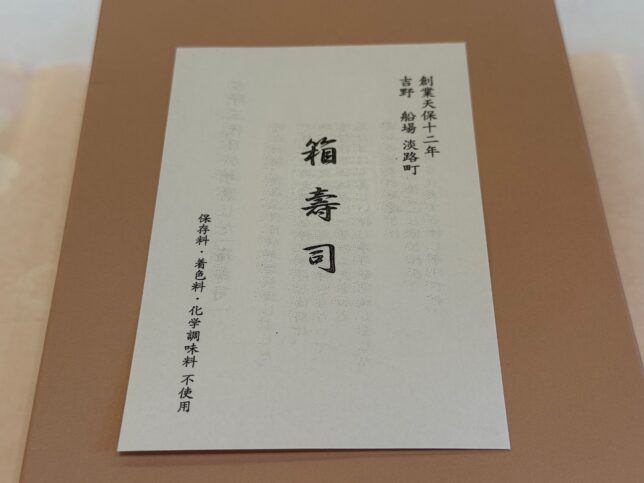 創業天保十二年
吉野 船場 淡路町
箱壽司
保存料・着色料・化学調味料 不使用